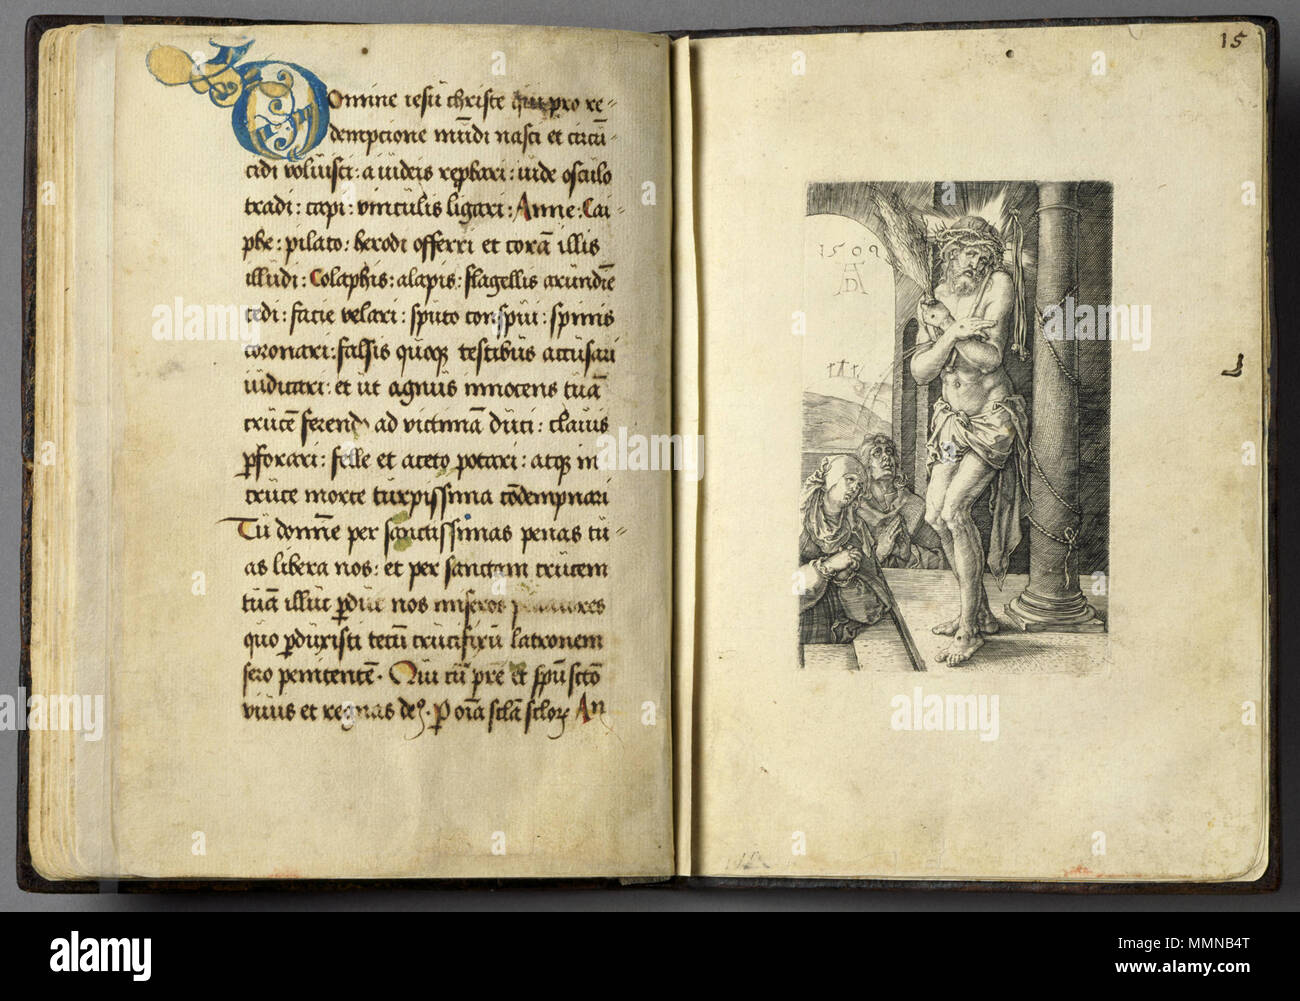 15
Domine iesu christe qui pro re-
dempcione mūdi nasci et circū
cidi voluisti: a iudeis rep̱bari: iude osculo
tradi: capi: vinculis ligari: Anne: Cai-
phe: pilato: herodi offerri et corā illis
illudi: Colaphis: alapis: flagellis arundiē
cedi: facie velari: sputo conspui: spinis
coronari: falsis quoqꝫ testibus accusari
iudicari: et ut agnus innocens tuā
crucē ferendo ad victimā duci: clauis
ꝑforari: felle et aceto potari: atqꝫ in
cruce morte turpissima cōdempnari
Tu domīe per sanctissimas penas tu-
as libera nos: et per sanctam crucem
tuā illuc ꝑduc nos miseros peccatores
quo ꝑduxisti tecū crucifixū latronem
sero penitentē. Qui cū pr̄e et spū sctō
viuis et regnas de9. P oīa sclā sclorꝫ An
1509
AD
alamy
alamy stock photo
MMNB4T
www.alamy.com